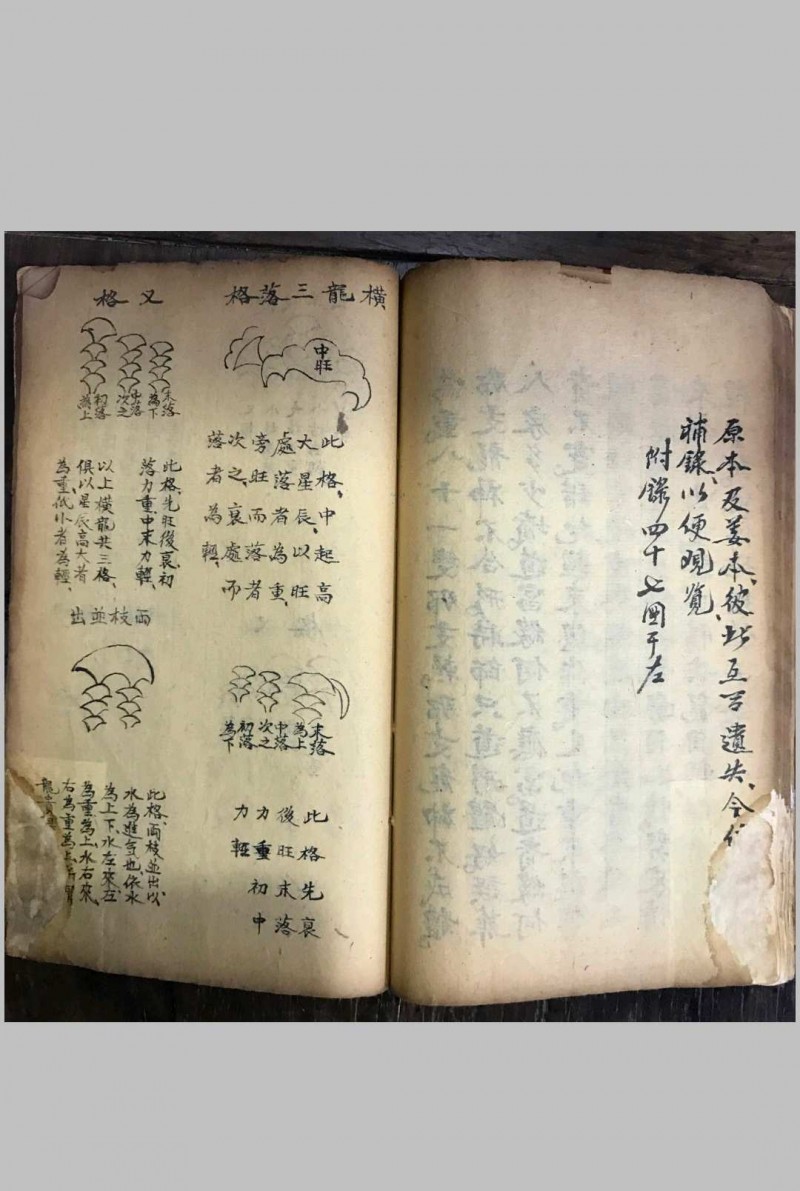 原本及姜本、彼此互有遺失、今
補錄、以便覌覧
附錄四十七圖于左
橫龍三落格
中旺
此格、中起高
大星辰、以旺
處落者為重、
旁旺而落者
次之、衰處而
落者為輕、
末落
為上
中落
次之
初落
為下
此格先衰
後旺末落
力重初中
力輕
又格
末落
為下
中落
次之
初落
為上
此格、先旺後衰、初
落力重、中末力輕、
以上橫龍共三格、
俱以星辰高大者
為重、低小者為輕、
兩枝並出
此格、兩枝並出、以
水為進氣也、依水
為上下、水左來、左
為重為上、水右來、
右為重為上、所謂
龍